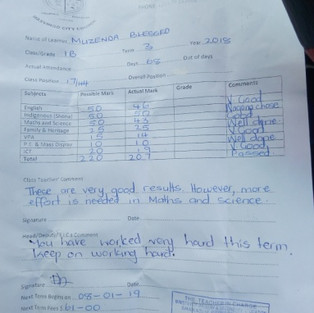 Name of Learner MUZENDA BLESSED
Class/Grade 1B Term 3 Year 2018
Actual Attendance Days 68 Out of days
Class Position 17/44 Overall Position
Subjects Possible Mark Actual Mark Grade Comments
English 50 46 V Good
Indigenous (Shona) 50 50
Maths and Science 50 43 Well done
Family & Heritage 25 25 V Good
VPA 15 14 Well done
P.E & Mass Display 10 10 V Good
ICT 19 Passed
Total 220 207
Class Teacher' Comment
These are very good results. However, more
effort is needed in Maths and science.
Signature Date
Comment
You have worked very hard this term.
Keep on working hard.
Signature Date
Next Term Begins on 08-01-19
Next Term Fees